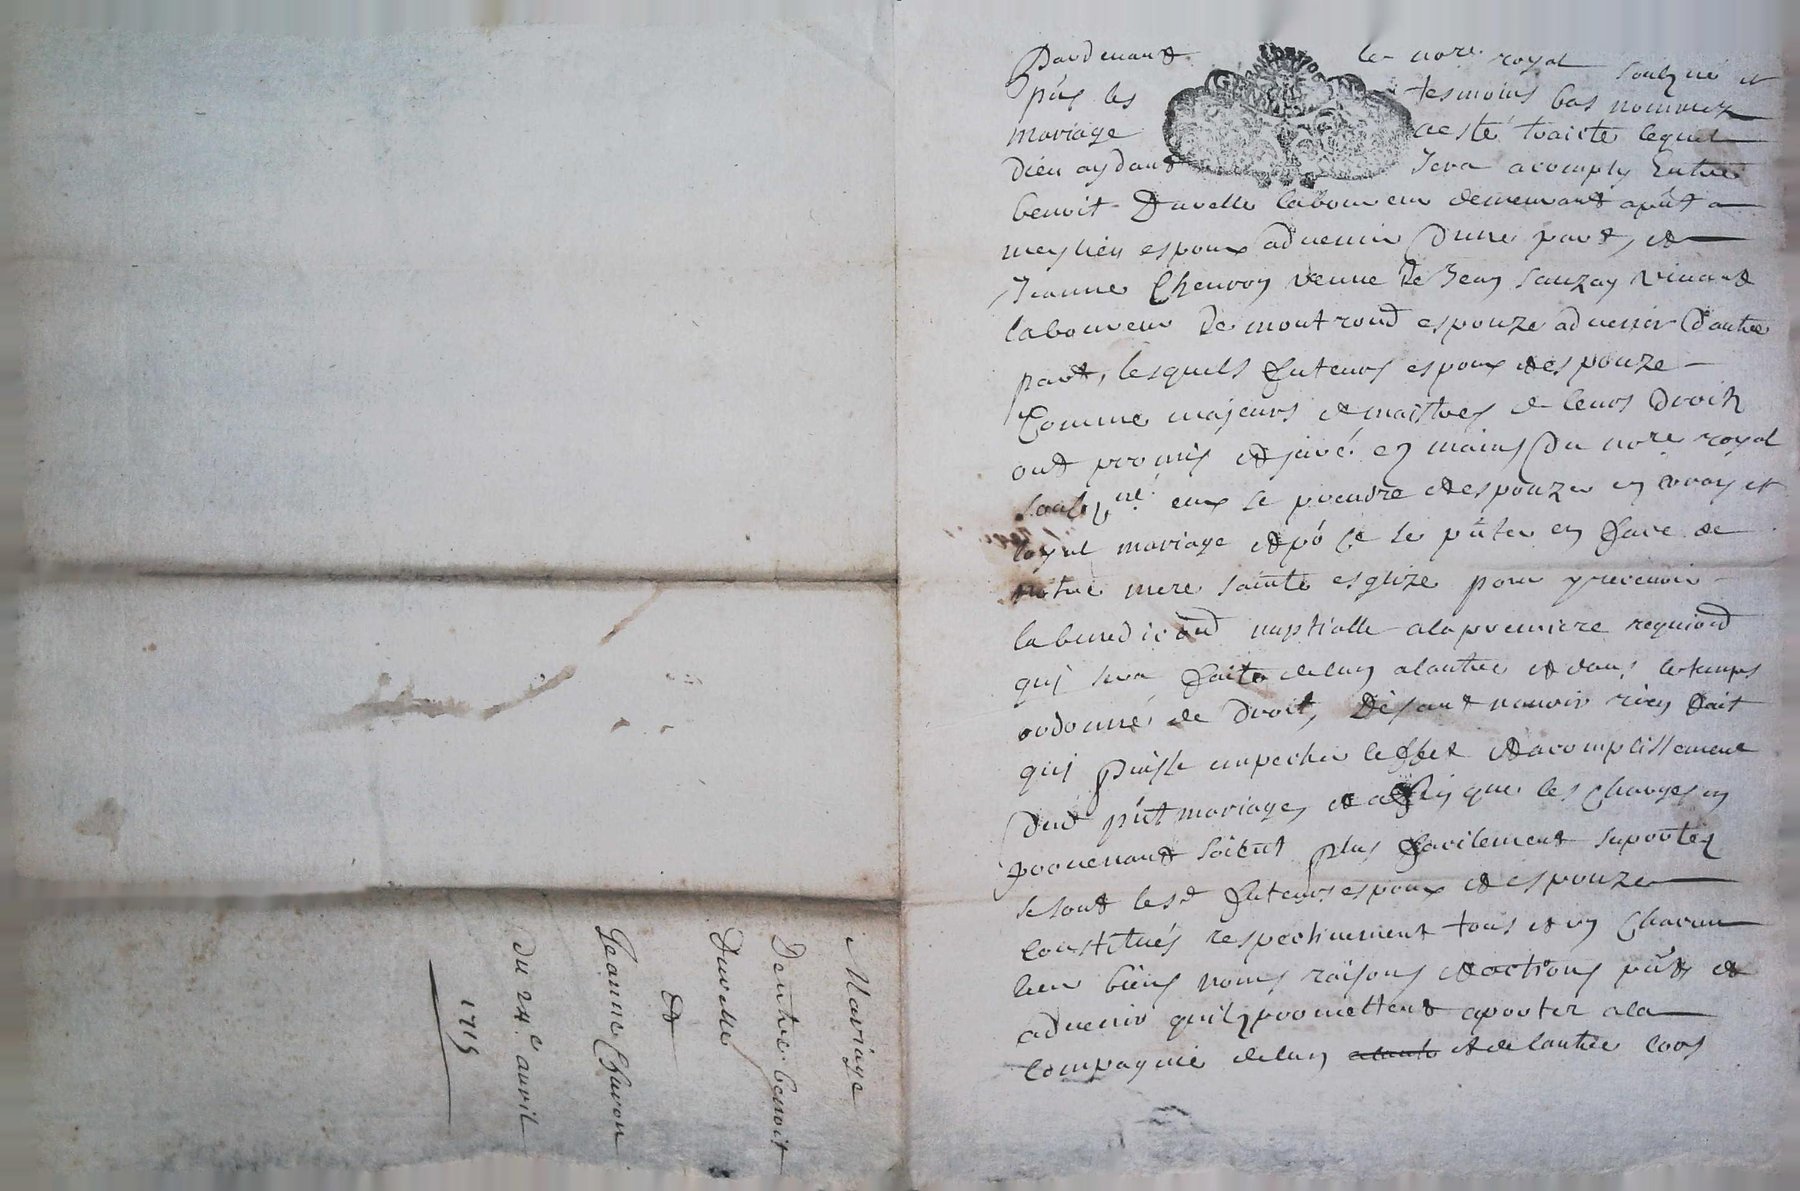 Pardevant le nore royal soubzné et
pñs les tesmoins bas nommez
mariage a esté traicté lequel
Dieu aydant sera acomply Entre
benoit Duvelle laboureur demeurant apñt a
meylieu espoux advenir Dune part, et
Jeanne Chenvoy veuve de Jean Sauzay vivant
laboureur de montrond espouze advenir D'autre
part, lesquels futeurs espoux et espouze
Comme majeurs et maistres de leurs Droitz
ont promis et juré es mains Du nore royal
soubzné eux se prendre et espouzer en vray et
loyal mariage et po ce se pñter en face de
notre mere sainte esglize pour y recevoir
la benediction nuptialle a la premiere requiond
qui sera faite de lun a lautre et dans le temps
ordonné de Droit, Disant navoir rien fait
qui puisse empecher leffet et acomplissement
Dud pñt mariage, et affin que les Charges en
provenant soient plus facilement suportez
se sont lesd futeurs espoux et espouze
Constitués respectivement tous et un Chacun
leur biens noms raisons et actions pñts et
advenir quilz promettent aporter a la
Compagnie de lun a lautre et de lautre lors
Mariage
Dentre benoit
Duvelle
et
Jeanne Chavon
Du 24e avril
1715